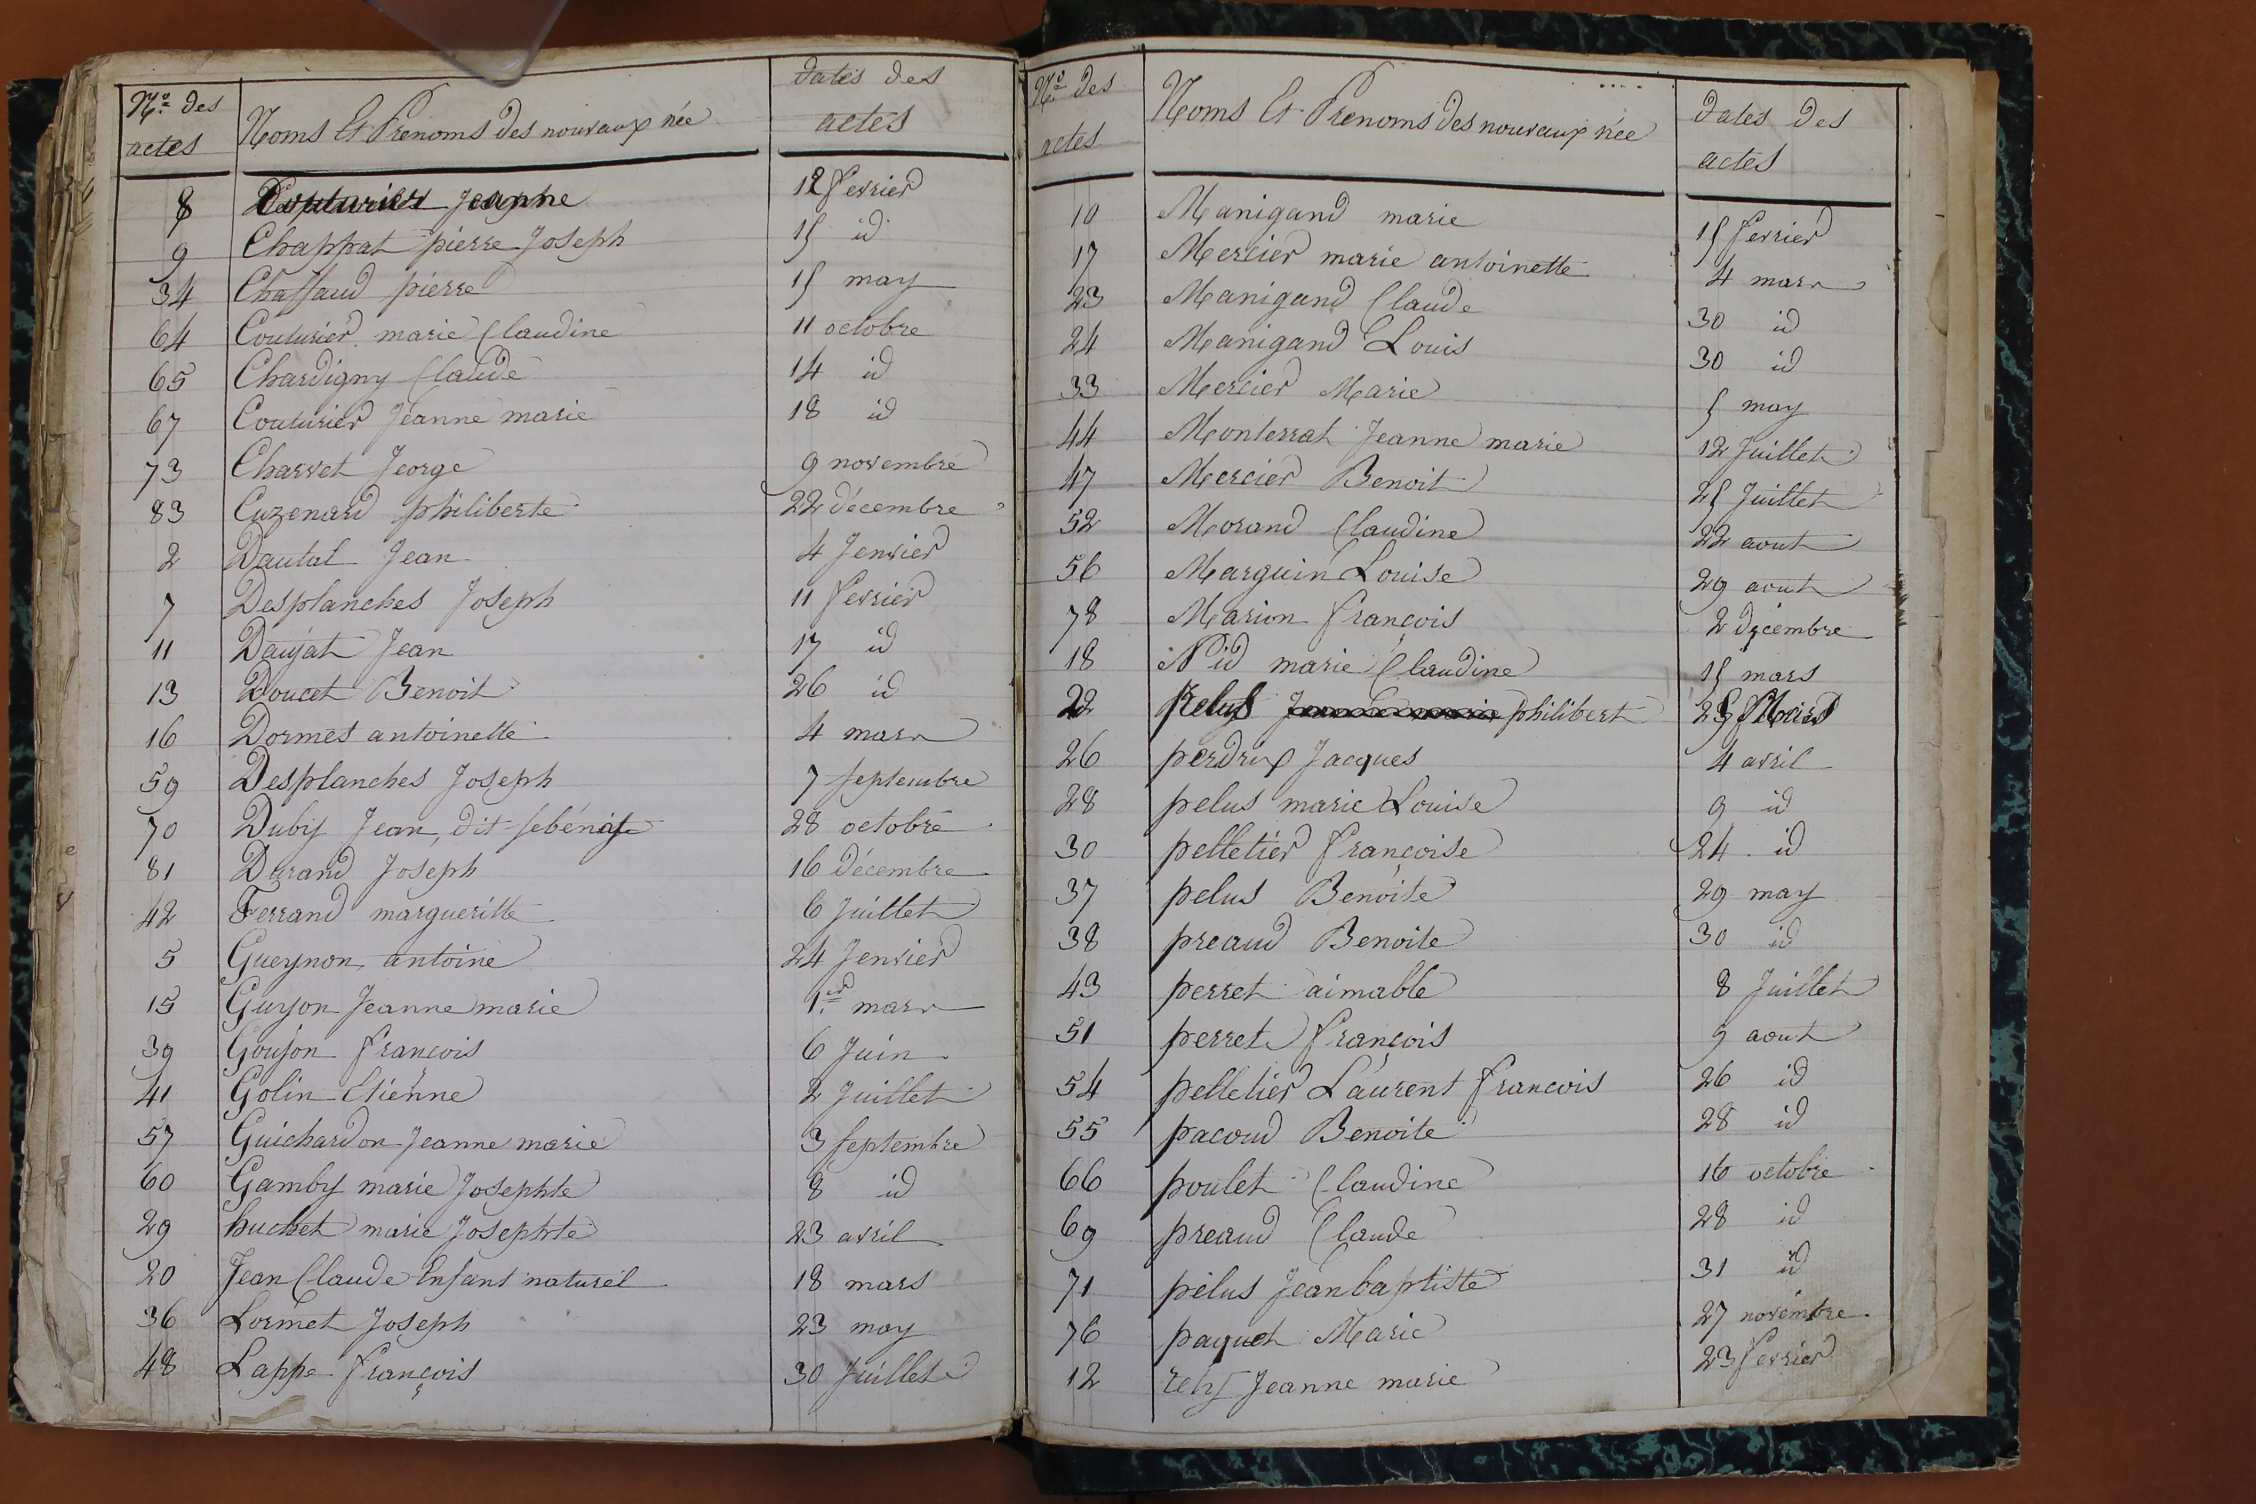 Nos des actes Noms Et Prenoms des nouveaux née dates des actes
8 Couturier Jeanne 12 fevrier
9 Chappat pierre Joseph 15 id
34 Chassaud pierre 15 may
64 Couturier marie Claudine 11 octobre
65 Chardigny Claude 14 id
67 Couturier Jeanne marie 18 id
73 Charvet Jeorge 9 novembre
83 Cuzenard philiberte 22 décembre
2 Dautal Jean 4 Jenvier
7 Desplanches Joseph 11 fevrier
11 Daujat Jean 17 id
13 Doucet Benoit 26 id
16 Dormes antoinette 4 mars
59 Desplanches Joseph 7 septembre
70 Duby Jean, dit 28 octobre
81 Durand Joseph 16 décembre
42 Ferrand margueritte 6 Juillet
5 Gueynon antoine 24 Jenvier
15 Guyon Jeanne marie 1.er mars
39 Goujon françois 6 Juin
41 Golin Etienne 2 Juillet
57 Guichardon Jeanne marie 3 septembre
60 Gamby marie Josephte 8 id
29 huchet marie Josephte 23 avril
20 Jean Claude Enfant naturel 18 mars
36 Lormet Joseph 23 may
48 Lappe françois 30 Juillet
Nos des actes Noms Et Prenoms des nouveaux née dates des actes
10 Manigand marie 15 fevrier
17 Mercier marie antoinette 4 mars
23 Manigand Claude 30 id
24 Manigand Louis 30 id
33 Mercier Marie 5 may
44 Monterrat Jeanne marie 12 Juillet
47 Mercier Benoit 25 Juillet
52 Morand Claudine 22 aout
56 Marguin Louise 29 aout
78 Marion françois 2 décembre
18 Nid marie Claudine 15 mars
22 pelus philibert
26 perdrix Jacques 4 avril
28 pelus marie Louise 9 id
30 pelletier françoise 24 id
37 pelus Benoite 29 may
38 preaud Benoite 30 id
43 perret aimable 8 Juillet
51 perret françois 9 aout
54 pelletier Laurent francois 26 id
55 pacoud Benoite 28 id
66 poulet Claudine 16 octobre
69 preaud Claude 28 id
71 pelus Jean baptiste 31 id
76 paquet Marie 27 novembre
12 rety Jeanne marie 23 fevrier